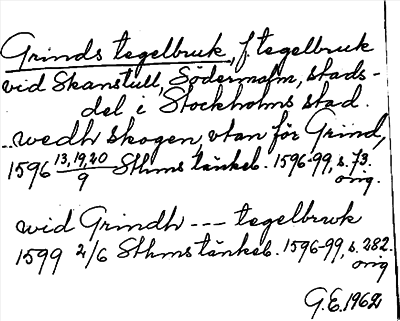 Grinds tegelbruk, f. tegelbruk
vid Skanstull, Södermalm, stads-
del i Stockholms stad.
..wedh skogen, vtan för Grind,
1596 13, 19, 20/9 Sthms tänkeb. 1596-99, s. 73.
orig.
wid Grindh --- tegelbruk
1599 2/6 Sthms tänkeb. 1596-99, s. 282.
orig
G.E. 1962